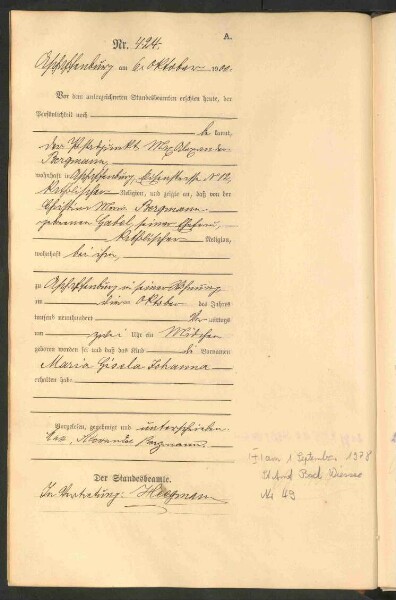 A.
Nr. 424.
Aschaffenburg am 6. Oktober 1900.
Vor dem unterzeichneten Standesbeamten erschien heute, der
Persönlichkeit nach
be kannt,
der Postadjunkt Max Alexander
Bergmann,
wohnhaft in Aschaffenburg, N 12,
katholischer Religion, und zeigte an, daß von der
Christina Maria Bergmann
geborenen Gabel, seiner Ehefrau,
katholischer Religion,
wohnhaft bei ihm,
zu Aschaffenburg in seiner Wohnung
am Oktober des Jahres
tausend neunhundert Vor mittags
um Uhr ein Mädchen
geboren worden sei und daß das Kind die Vornamen
Maria Gisela Johanna
erhalten habe
Vorgelesen, genehmigt und unterschrieben
Alexander Bergmann.
Der Standesbeamte.
In Vertretung:
† am 1 September 1978
Bad
Nr 49